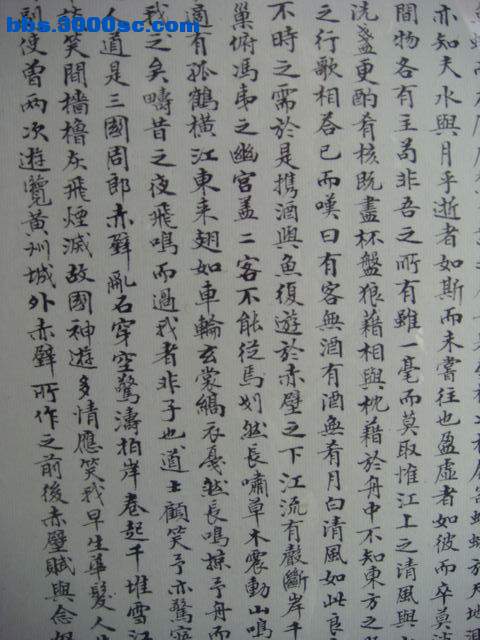 bbs.3000sc.com
蜉蝣於天地
亦知夫水與月乎逝者如斯而未嘗往也盈虛者如彼而卒莫消
間物各有主苟非吾之所有雖一毫而莫取惟江上之清風與
洗盞更酌肴核既盡杯盤狼藉相與枕藉於舟中不知東方之
之行歌相答已而嘆曰有客無酒有酒無肴月白清風如此良
不時之需於是攜酒與魚復遊於赤壁之下江流有聲斷岸千
巢俯馮夷之幽宮蓋二客不能從焉划然長嘯草木震動山鳴
適有孤鶴橫江東來翅如車輪玄裳縞衣戛然長鳴掠予舟而
我之矣疇昔之夜飛鳴而過我者非子也道士顧笑予亦驚寤
人道是三國周郎赤壁亂石穿空驚濤拍岸卷起千堆雪江
談笑間檣櫓灰飛煙滅故國神遊多情應笑我早生華髮人生
曾兩次遊覽黃州城外赤壁所作之前後赤壁賦與念奴